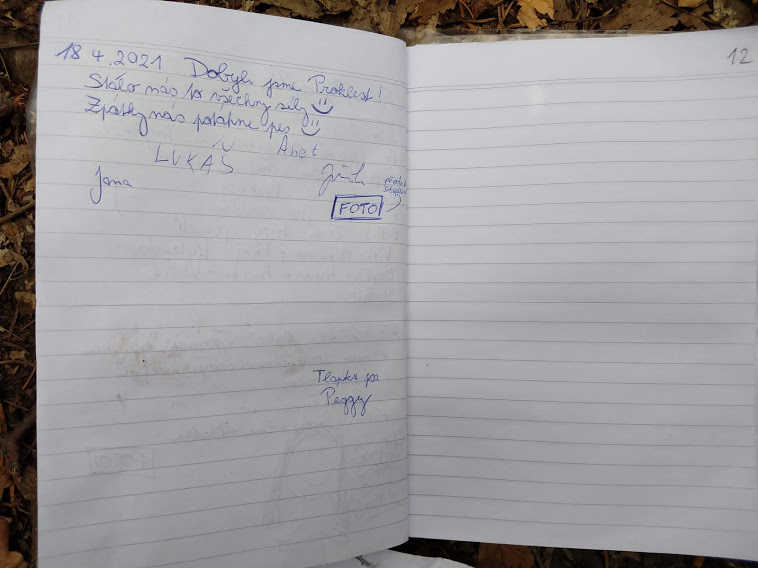 18 4.2021 Dobyli jsme Proklest!
Stálo nás to všechny síly
Zpátky nás potáhne pes
Anet
LUKÁŠ
Jana
FOTO
Tlapka psa
Peggy
12